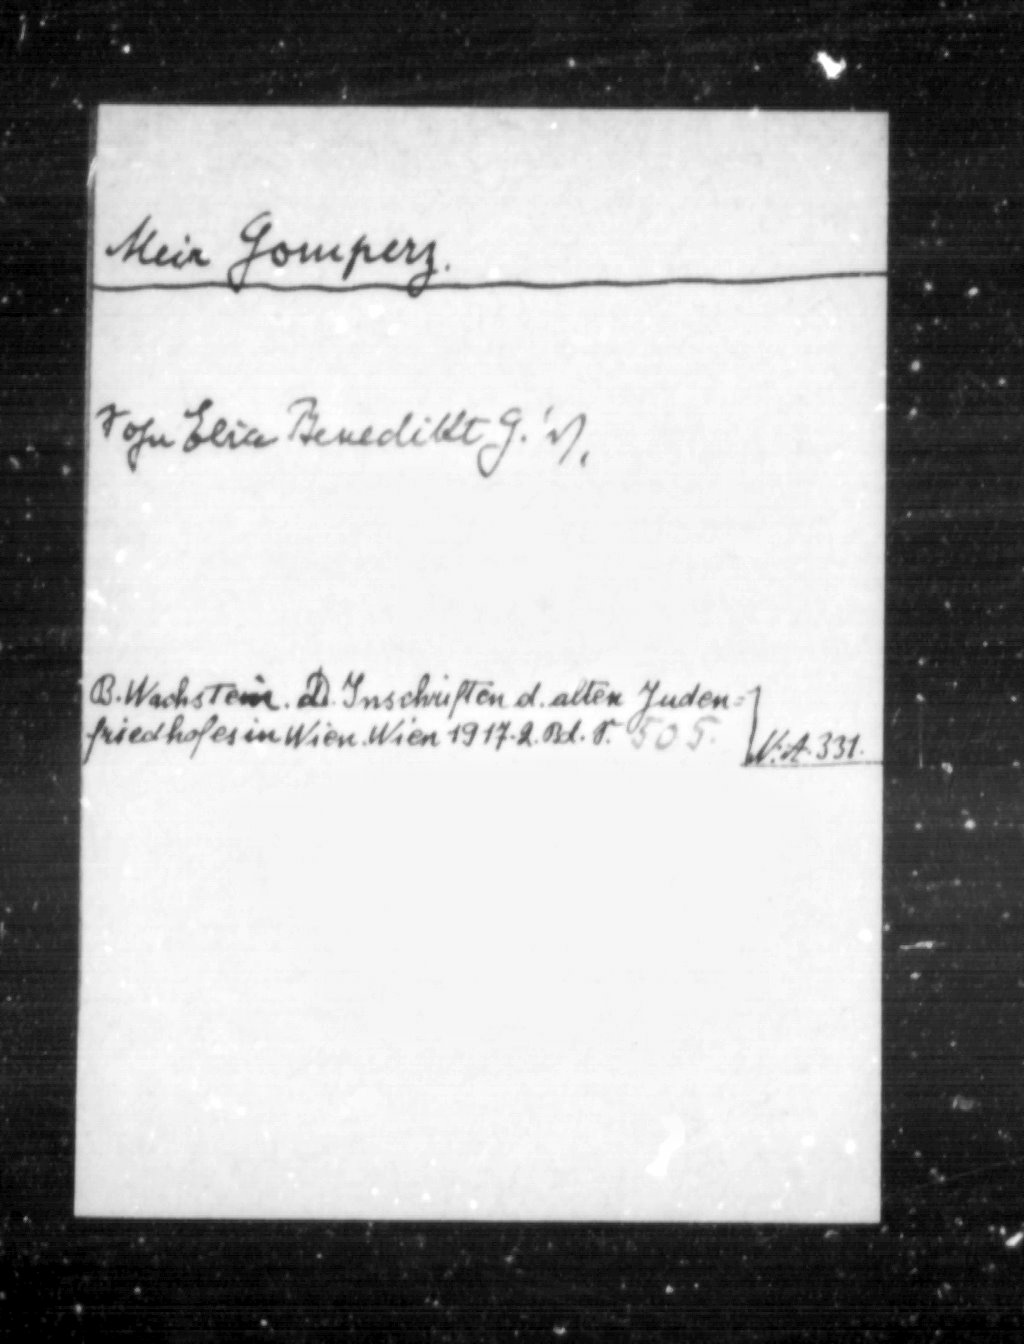 Meir Gomperz.
Sohn Elia Benedikt G.'s.
B. Wachstein. D. Inschriften d. alten Juden=
friedhofes in Wien. Wien 1917. 2. Bd. S. 505.
N. A. 331.